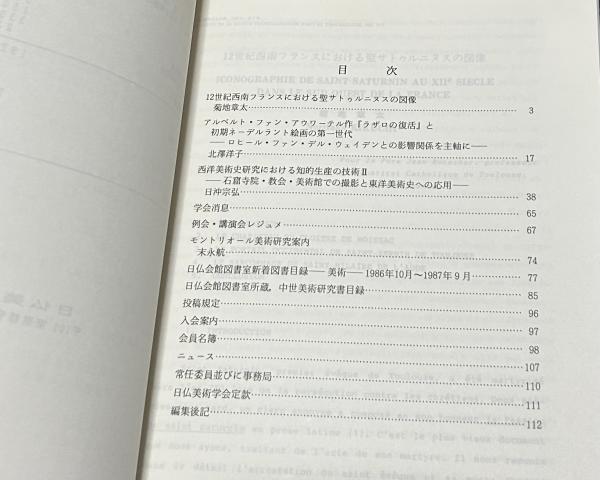 12世紀西南フランスにおける聖サトゥルニヌスの図像
目 次
ICONOGRAPHIE DE SAINT SATURNIN AU XIIe SIECLE
DANS LE SUD-OUEST DE LA FRANCE
12世紀西南フランスにおける聖サトゥルニヌスの図像
菊地章太……3
アルベルト・ファン・アウワーテル作『ラザロの復活』と
初期ネーデルラント絵画の第一世代
――ロヒール・ファン・デル・ウェイデンとの影響関係を主軸に――
北澤洋子……17
西洋美術史研究における知的生産の技術Ⅱ
――石窟寺院・教会・美術館での撮影と東洋美術史への応用――
日沖宗弘……38
学会消息……65
例会・講演会レジュメ……67
モントリオール美術研究案内
末永航……74
日仏会館図書室新着図書目録――美術――1986年10月～1987年9月……77
日仏会館図書室所蔵，中世美術研究書目録……85
投稿規定……96
入会案内……97
会員名簿……98
ニュース……107
常任委員並びに事務局……110
日仏美術学会定款……111
編集後記……112